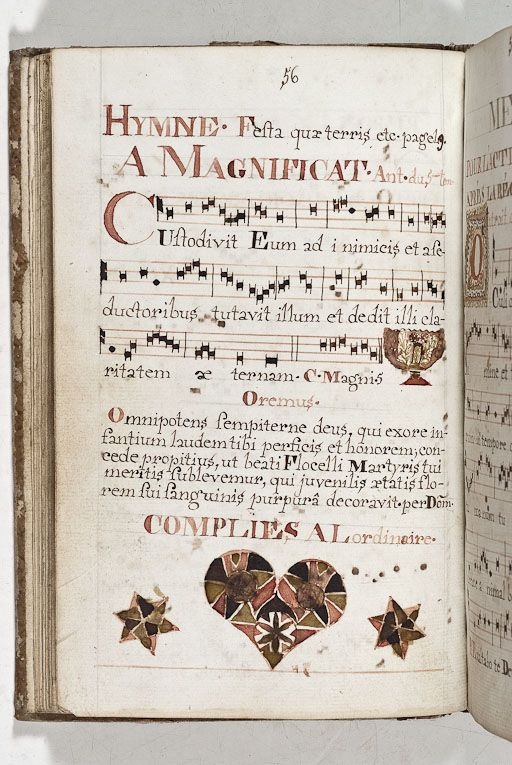 56
HYMNE. Festa quæ terris etc. page 19.
A MAGNIFICAT. Ant. du 5me ton
CUstodivit Eum ad i nimicis et ase-
ductoribus, tutavit illum et dedit illi cla-
ritatem æ ternam. C. Magnis
Oremus.
Omnipotens sempiterne deus, qui exore in-
fantium laudem tibi perficis et honorem, con-
cede propitius, ut beati Flocelli Martyris tui
meritis sublevemur, qui juvenilis ætatis flo-
rem sui sanguinis purpurâ decoravit. per Dom.
COMPLIES A Lordinaire.
POUR LACTI
APRES LA
O